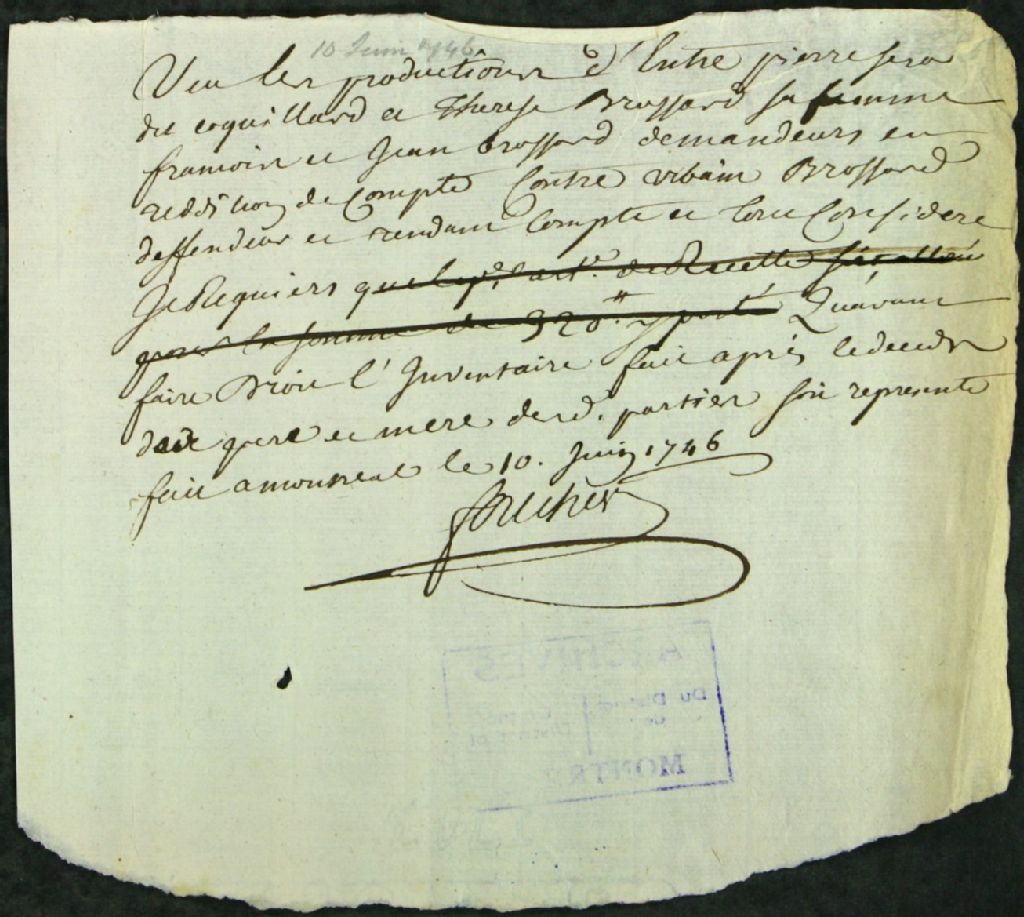 10 Juin 1746
Veu les productions d'Entre pierre sera
dit coquillard et Therese Brossard sa femme
francois et Jean brossard demandeurs en
reddition de Compte Contre vrbain Brossard
deffendeur et rendant Compte et tout Considere
Je Requiers que le pr. art. de Recette
la somme de 320.tt y porté Quavant
faire Droit l'Inventaire fait aprés le deceds
des pere et mere desd. parties soit represente
fait a monreal le 10. Juin 1746
foucher
ARCHIVES
Du District
de
MONTR